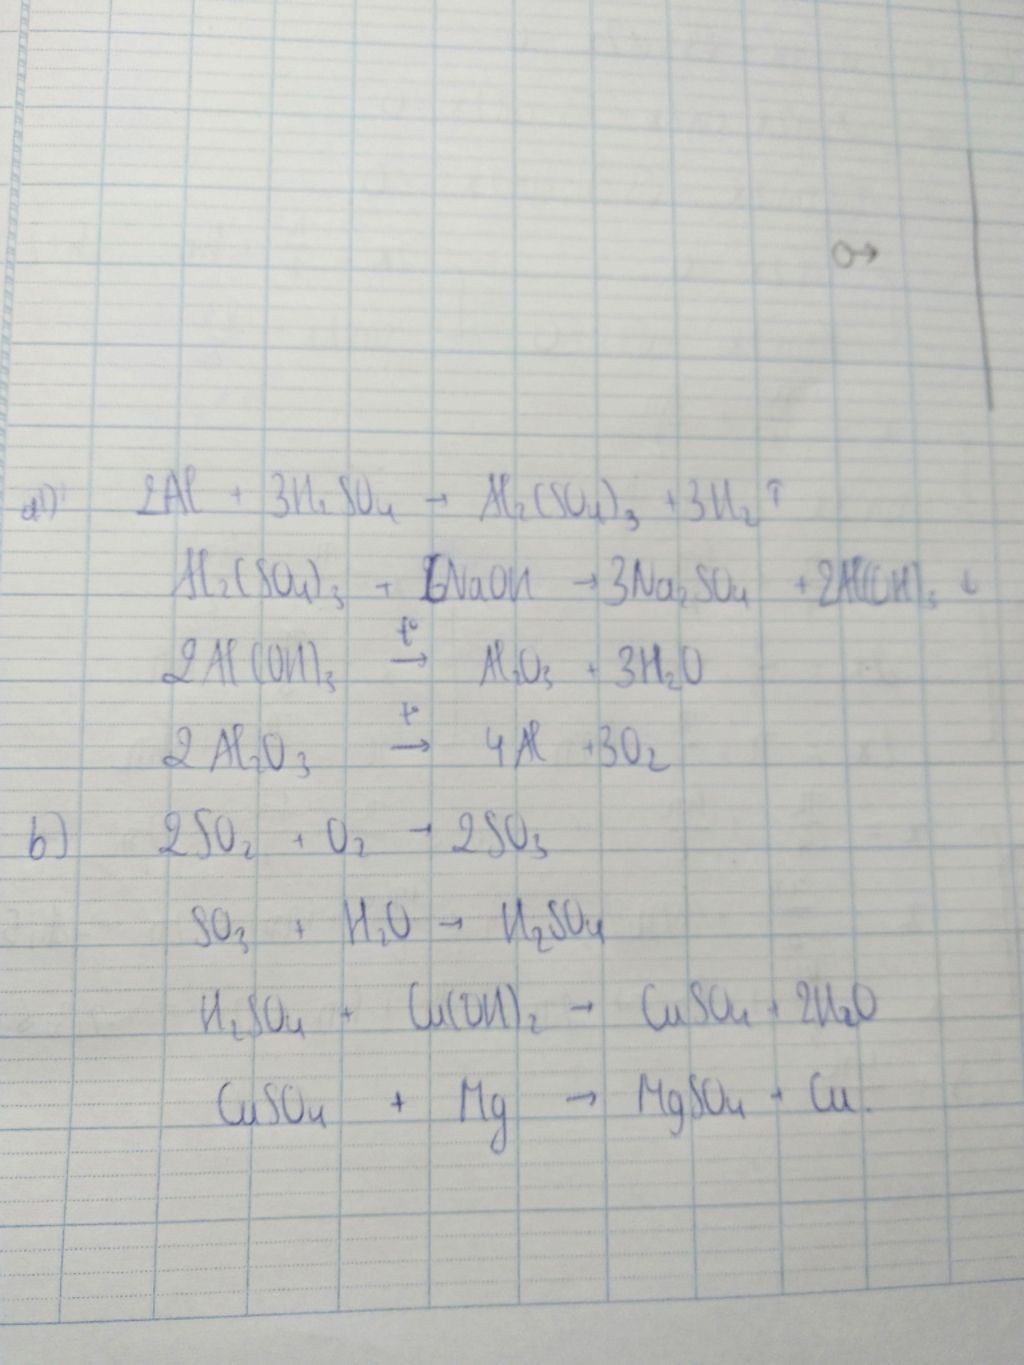 a) 2Al + 3H₂SO₄ → Al₂(SO₄)₃ + 3H₂ ↑
Al₂(SO₄)₃ + 6NaOH → 3Na₂SO₄ + 2Al(OH)₃ ↓
2Al(OH)₃ t° → Al₂O₃ + 3H₂O
2Al₂O₃ t° → 4Al + 3O₂
b) 2SO₂ + O₂ → 2SO₃
SO₃ + H₂O → H₂SO₄
H₂SO₄ + Cu(OH)₂ → CuSO₄ + 2H₂O
CuSO₄ + Mg → MgSO₄ + Cu.